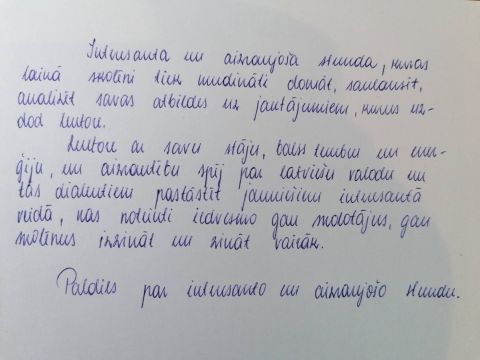 Interesanta un aizraujoša stunda, kuras
laikā skolēni tiek mudināti domāt, saklausīt,
analizēt savas atbildes uz jautājumiem, kurus uz-
dod lektore.
Lektore ar savu stāju, balss tembru un ener-
ģiju, un aizrautību spēj par latviešu valodu un
tās dialektiem pastāstīt jauniešiem interesantā
veidā, kas noteikti iedvesmo gan skolotājus, gan
skolēnus izzināt un zināt vairāk.
Paldies par interesanto un aizraujošo stundu.